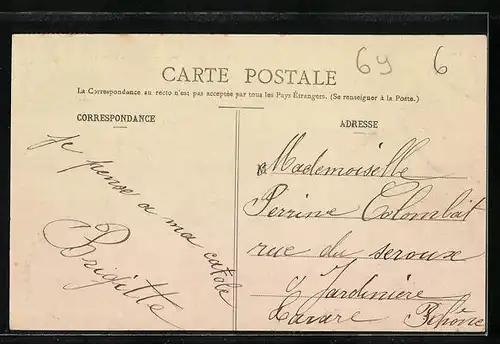 69 6
CARTE POSTALE
La Correspondance au recto n'est pas acceptée par tous les Pays Étrangers. (Se renseigner à la Poste.)
CORRESPONDANCE
ADRESSE
je pense a ma
Brigitte
Mademoiselle
Perrine Colombat
rue du
Jardinière
Tarare Rhône